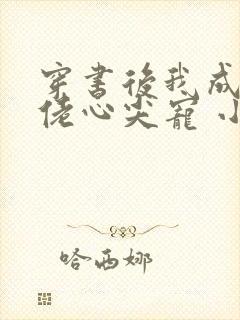 穿書後我成
佬心尖寵 小
哈西娜